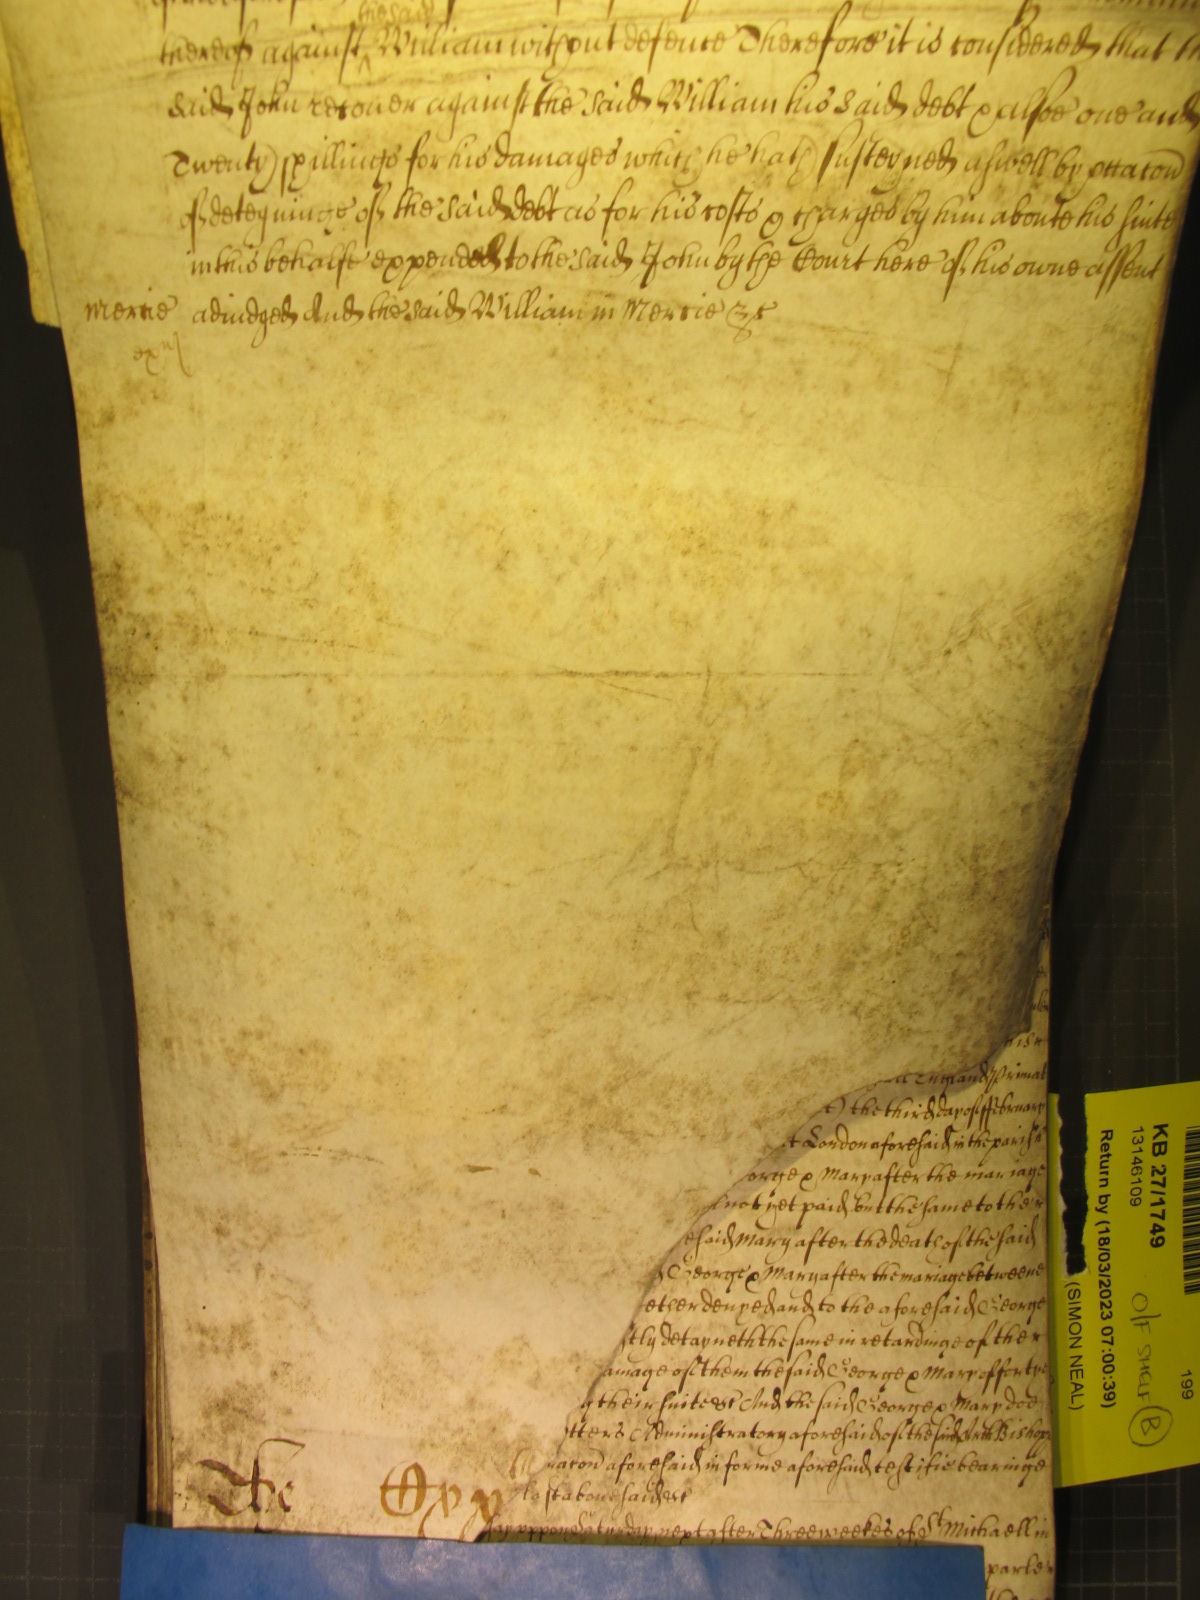 the said
thereof against William without defence Therefore it is considered that
said John recover against the said William his said debt & alsoe one and
Twenty shillings for his damages which he hath susteyned aswell by occacon
of deteyninge of the said debt as for his costs & charges by him aboute his suite
in this behalfe expended to the said John by the Court here of his owne assent
Mercie adiudged And the said William in Mercie &c
England Primat
the third day of ffebruary
London aforesaid in the parish
orge & Mary after the mariage
not yet paid but the same to the
esaid Mary after the death of the said
George & Mary after the mariage betweene
ether denyed and to the aforesaid George
stly detayneth the same in retardinge of the
amage of them the said George & Mary of fortye
their suite &c And the said George & Mary doe
tters Administratory aforesaid of the said Arch Bishop
racon aforesaid in forme aforesaid testifie bearinge
last abovesaid &c
The
day uppon Saturday next after Three weekes of St Michaell in
parle
KB 27/1749
13146109
Return by (18/03/2023 07:00:39)
(SIMON NEAL)
O/F SHELF B
199